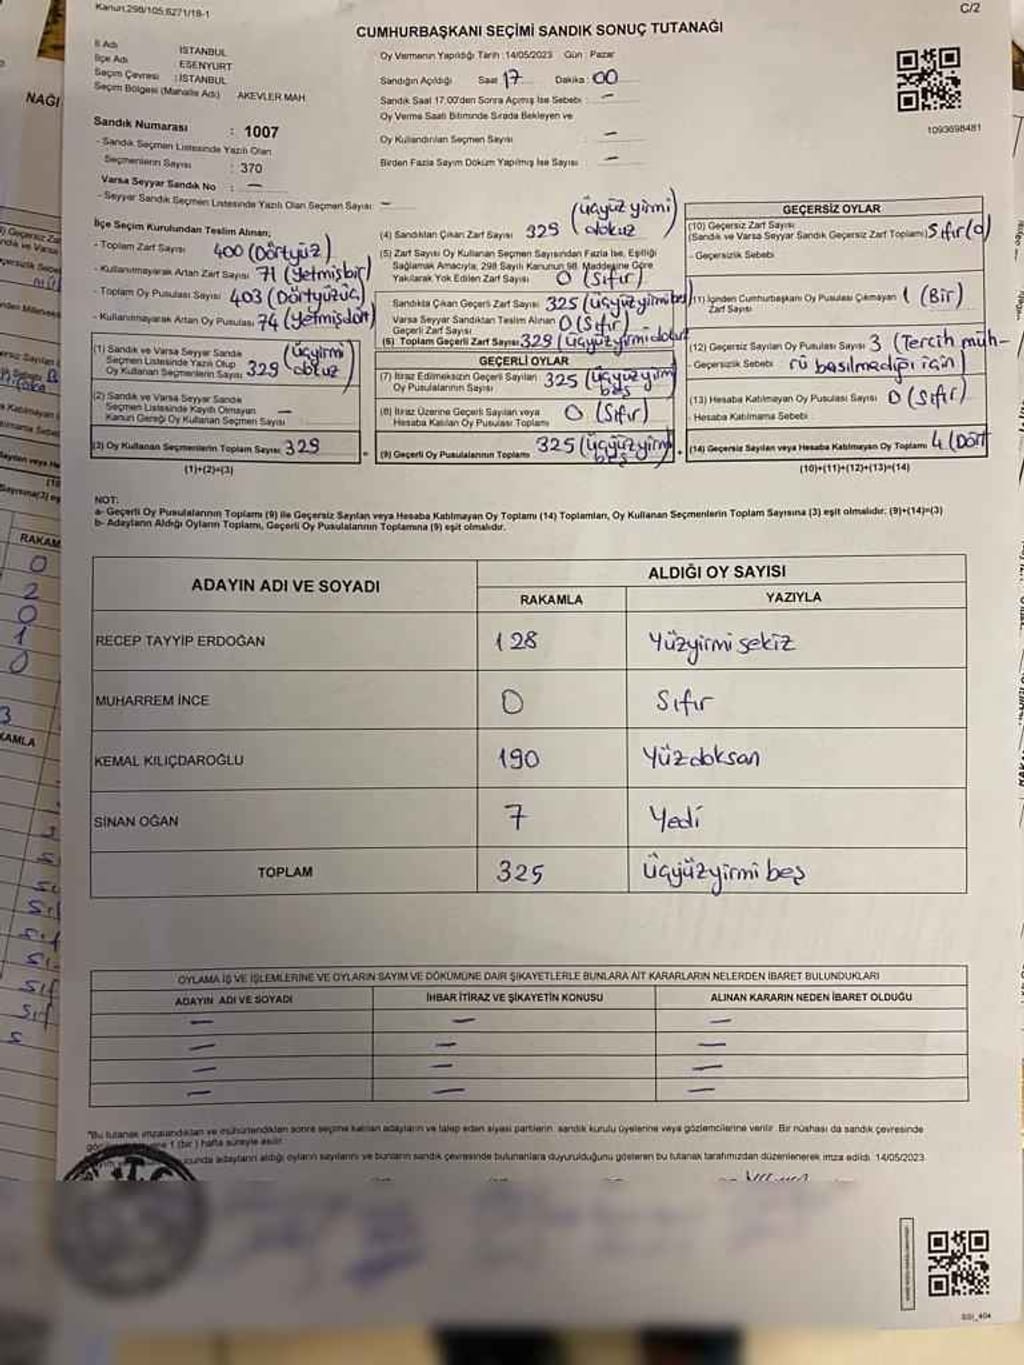 Kanun.298/105.6271/18-1
C/2
CUMHURBAŞKANI SEÇİMİ SANDIK SONUÇ TUTANAĞI
İl Adı İSTANBUL
İlçe Adı ESENYURT
Seçim Çevresi : İSTANBUL
Seçim Bölgesi (Mahalle Adı) AKEVLER MAH.
Sandık Numarası : 1007
- Sandık Seçmen Listesinde Yazılı Olan
Seçmenlerin Sayısı : 370
Varsa Seyyar Sandık No : —
- Seyyar Sandık Seçmen Listesinde Yazılı Olan Seçmen Sayısı: —
Oy Vermenin Yapıldığı Tarih : 14/05/2023 Gün : Pazar
Sandığın Açıldığı Saat 17 Dakika : 00
Sandık Saat 17:00'den Sonra Açılmış İse Sebebi : —
Oy Verme Saati Bitiminde Sırada Bekleyen ve
Oy Kullandırılan Seçmen Sayısı : —
Birden Fazla Sayım Döküm Yapılmış İse Sayısı : —
1093698481
İlçe Seçim Kurulundan Teslim Alınan;
- Toplam Zarf Sayısı 400 (Dörtyüz)
- Kullanılmayarak Artan Zarf Sayısı 71 (Yetmişbir)
- Toplam Oy Pusulası Sayısı 403 (Dörtyüzüç)
- Kullanılmayarak Artan Oy Pusulası 74 (Yetmişdört)
(1) Sandık ve Varsa Seyyar Sandık
Seçmen Listesinde Yazılı Olup
Oy Kullanan Seçmenlerin Sayısı 329
(2) Sandık ve Varsa Seyyar Sandık
Seçmen Listesinde Kayıtlı Olmayan
Kanun Gereği Oy Kullanan Seçmen Sayısı —
(3) Oy Kullanan Seçmenlerin Toplam Sayısı 329
(1)+(2)=(3)
(4) Sandıktan Çıkan Zarf Sayısı 329 (üçyüzyirmi dokuz
(5) Zarf Sayısı Oy Kullanan Seçmen Sayısından Fazla İse, Eşitliği
Sağlamak Amacıyla, 298 Sayılı Kanunun 98. Maddesine Göre
Yakılarak Yok Edilen Zarf Sayısı 0 (Sıfır)
Sandıkta Çıkan Geçerli Zarf Sayısı 325 (üçyüzyirmibeş
Varsa Seyyar Sandıktan Teslim Alınan
Geçerli Zarf Sayısı 0 (Sıfır)
(6) Toplam Geçerli Zarf Sayısı 329
GEÇERLİ OYLAR
(7) İtiraz Edilmeksizin Geçerli Sayılan
Oy Pusulalarının Sayısı 325 (üçyüzyirmi beş
(8) İtiraz Üzerine Geçerli Sayılan veya
Hesaba Katılan Oy Pusulası Toplamı 0 (Sıfır)
(9) Geçerli Oy Pusulalarının Toplamı 325 (üçyüzyirmi beş
GEÇERSİZ OYLAR
(10) Geçersiz Zarf Sayısı
(Sandık ve Varsa Seyyar Sandık Geçersiz Zarf Toplamı) Sıfır(0)
- Geçersizlik Sebebi
(11) İçinden Cumhurbaşkanı Oy Pusulası Çıkmayan 1 (Bir)
Zarf Sayısı
(12) Geçersiz Sayılan Oy Pusulası Sayısı 3 (Tercih müh-
- Geçersizlik Sebebi rü basılmadığı için)
(13) Hesaba Katılmayan Oy Pusulası Sayısı 0 (Sıfır)
- Hesaba Katılmama Sebebi
(14) Geçersiz Sayılan veya Hesaba Katılmayan Oy Toplamı 4 (Dört
(10)+(11)+(12)+(13)=(14)
NOT:
a- Geçerli Oy Pusulalarının Toplamı (9) ile Geçersiz Sayılan veya Hesaba Katılmayan Oy Toplamı (14) Toplamları, Oy Kullanan Seçmenlerin Toplam Sayısına (3) eşit olmalıdır; (9)+(14)=(3)
b- Adayların Aldığı Oyların Toplamı, Geçerli Oy Pusulalarının Toplamına (9) eşit olmalıdır.
ADAYIN ADI VE SOYADI ALDIĞI OY SAYISI
RAKAMLA YAZIYLA
RECEP TAYYİP ERDOĞAN 128 Yüzyirmi sekiz
MUHARREM İNCE 0 Sıfır
KEMAL KILIÇDAROĞLU 190 Yüzdoksan
SİNAN OĞAN 7 Yedi
TOPLAM 325 Üçyüzyirmi beş
OYLAMA İŞ VE İŞLEMLERİNE VE OYLARIN SAYIM VE DÖKÜMÜNE DAİR ŞİKAYETLERLE BUNLARA AİT KARARLARIN NELERDEN İBARET BULUNDUKLARI
ADAYIN ADI VE SOYADI İHBAR İTİRAZ VE ŞİKAYETİN KONUSU ALINAN KARARIN NEDEN İBARET OLDUĞU
— — —
— — —
— — —
— — —
*Bu tutanak imzalandıktan ve mühürlendikten sonra seçime katılan adayların ve talep eden siyasi partilerin, sandık kurulu üyelerine veya gözlemcilerine verilir. Bir nüshası da sandık çevresinde
1 (bir) hafta süreyle asılır.
adayların aldığı oyların sayılarını ve bunların sandık çevresinde bulunanlara duyurulduğunu gösteren bu tutanak tarafımızdan düzenlenerek imza edildi. 14/05/2023